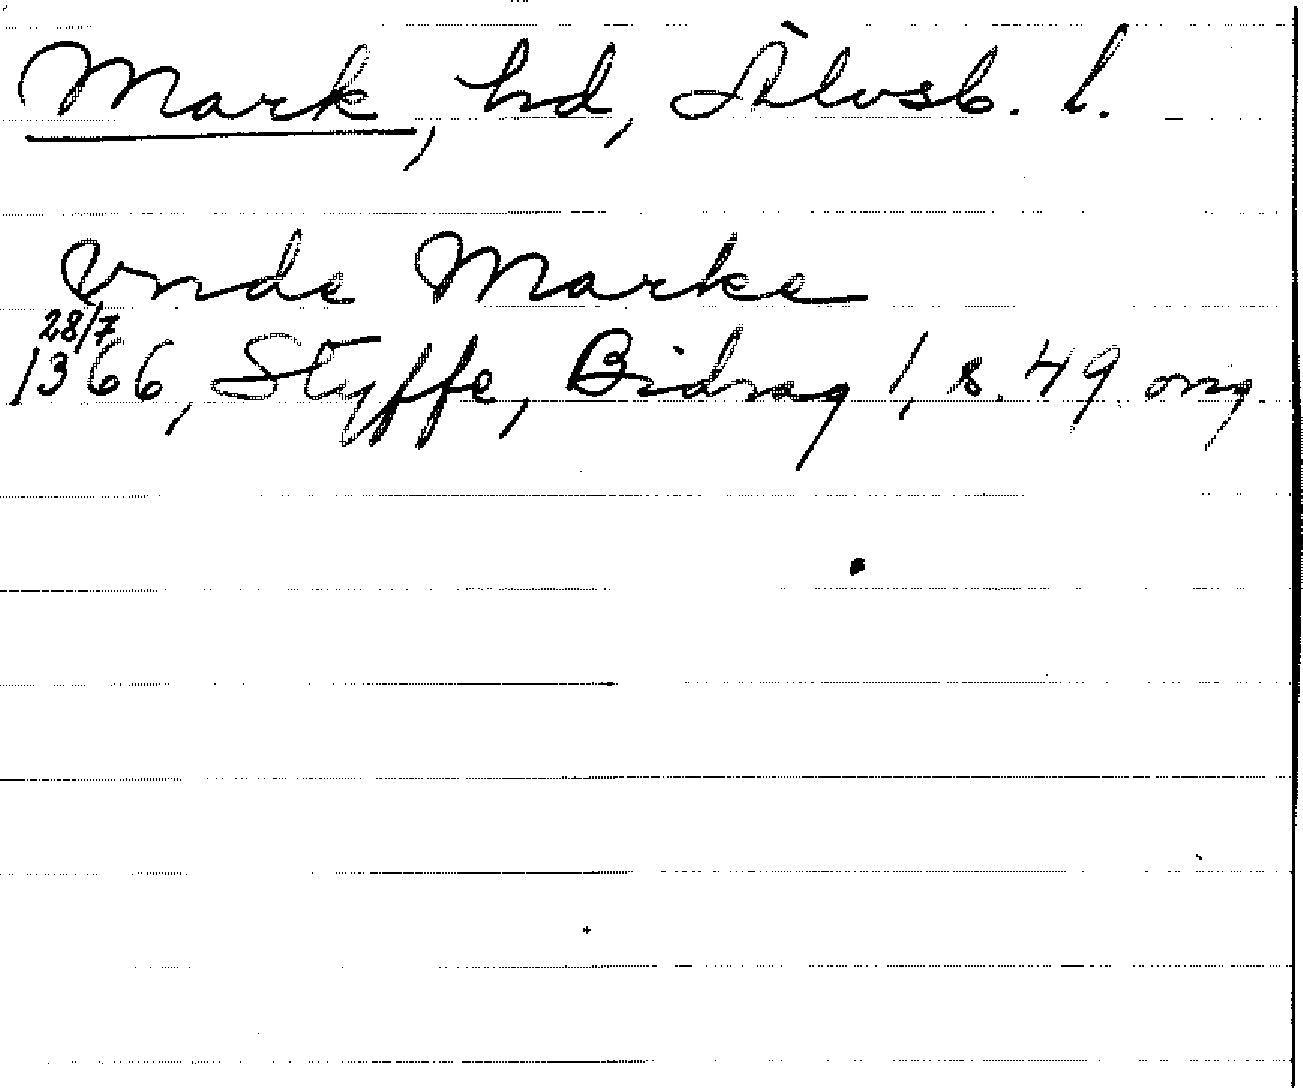 Mark, hd, Älvsb. l.
vnde Marke
28/7
1366, Styffe, Bidrag 1, s. 49 orig.